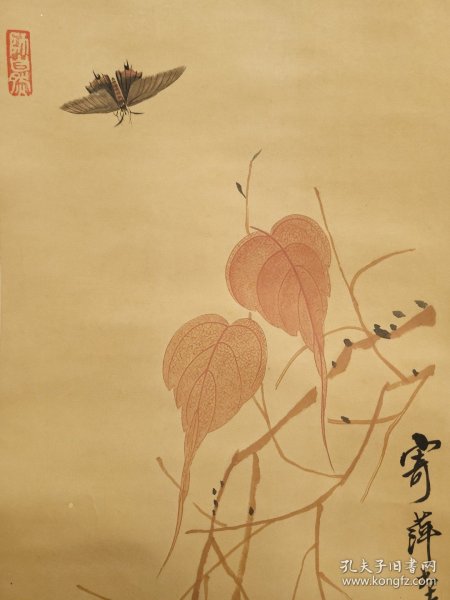 寄萍堂
孔夫子旧书网
www.kongfz.com